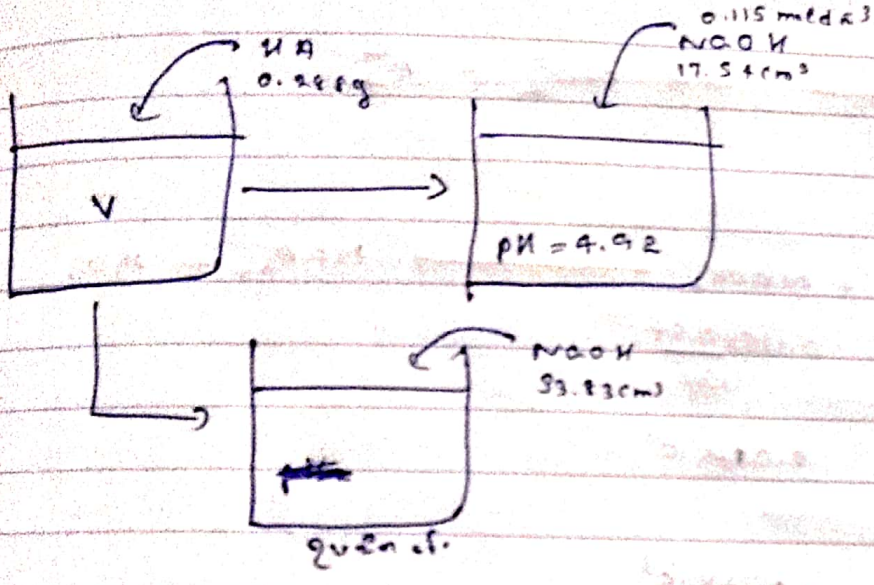 HA
0.288g
0.115 moldm³
NaOH
17.54cm³
V
pH = 4.92
NaOH
33.83cm³